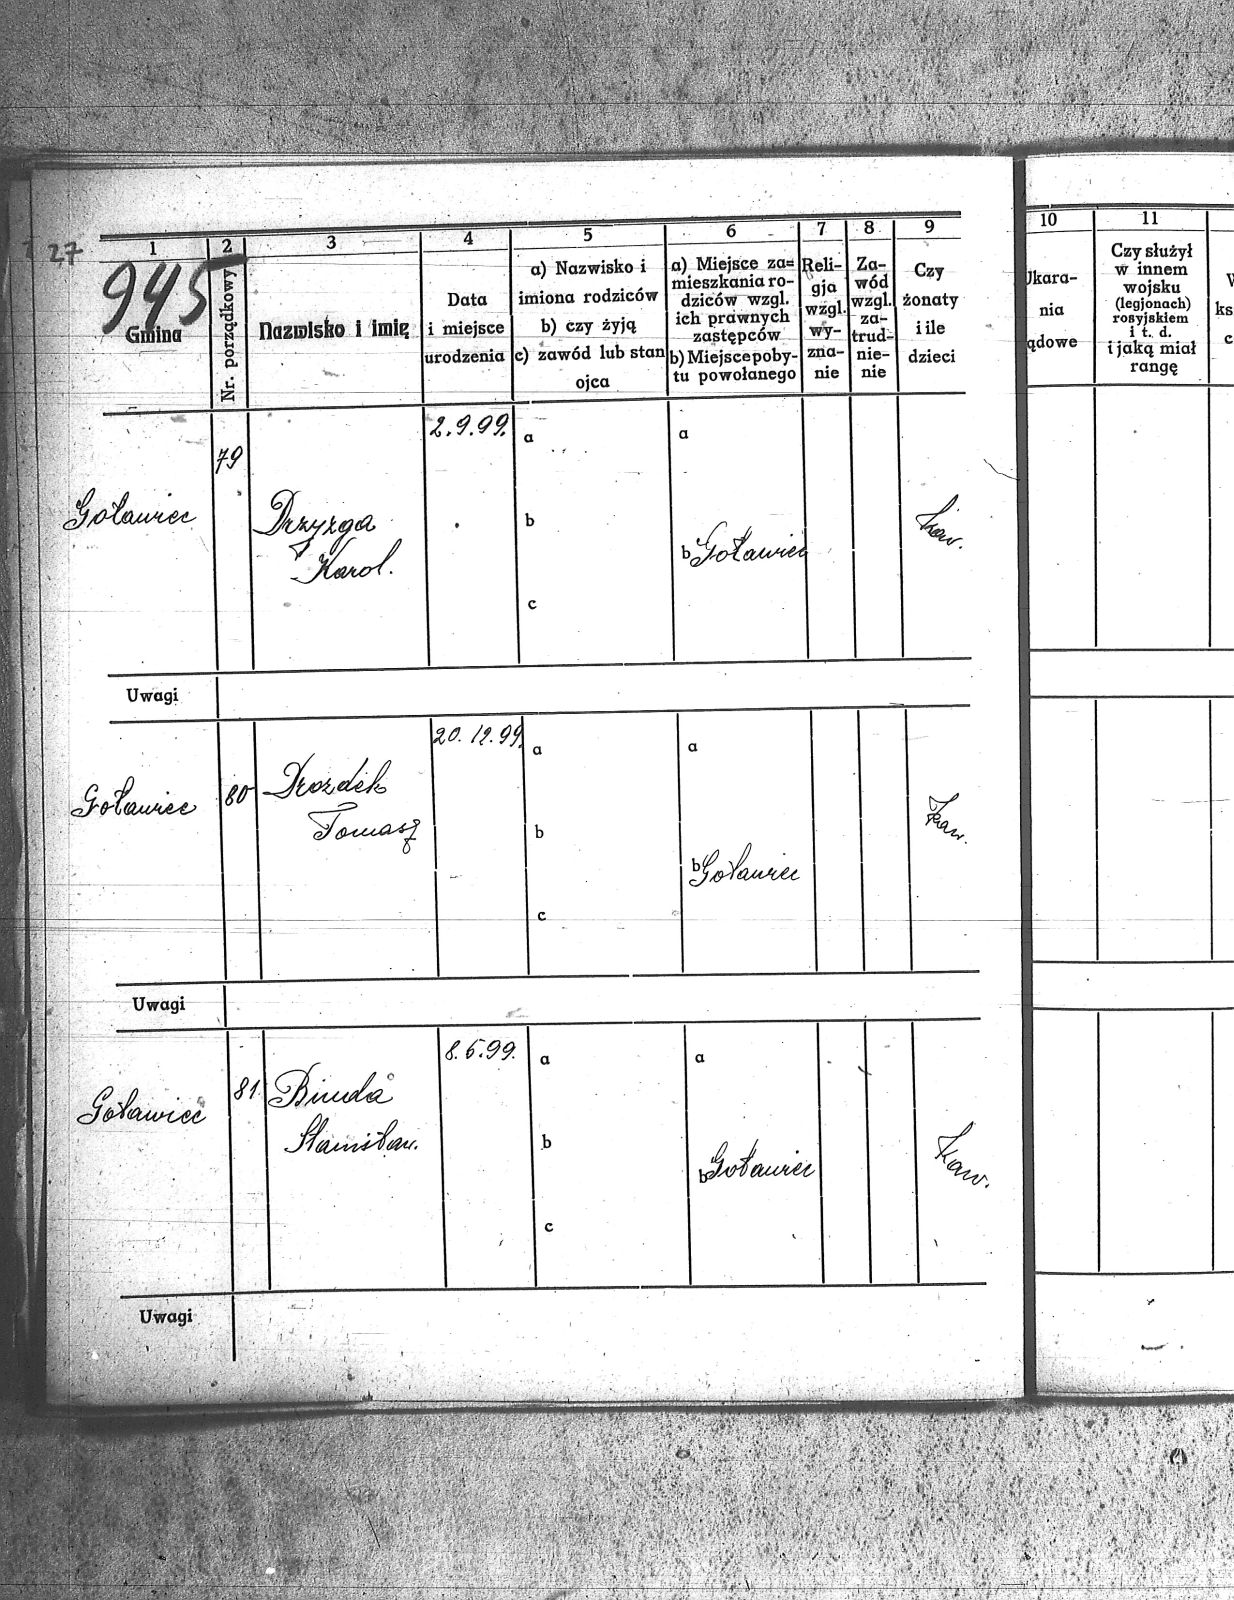 27
945
1 2 3 4 5 6 7 8 9
Gmina
Nr. porządkowy
Nazwisko i imię
Data
i miejsce
urodzenia
a) Nazwisko i
imiona rodziców
b) czy żyją
c) zawód lub stan
ojca
a) Miejsce za=
mieszkania ro-
dziców wzgl.
ich prawnych
zastępców
b) Miejsce poby-
tu powołanego
Reli-
gja
wzgl.
wy-
zna-
nie
Za-
wód
wzgl.
za-
trud-
nie-
nie
Czy
żonaty
i ile
dzieci
Goławiec
79
Drzyzga
Karol.
2.9.99.
a
b
c
a
b Goławiec
kaw.
Uwagi
Goławiec
80
Drozdek
Tomasz
20.12.99.
a
b
c
a
b Goławiec
kaw.
Uwagi
Goławiec
81
Binda
Stanisław.
8.6.99.
a
b
c
a
b Goławiec
kaw.
Uwagi
10 11
Ukara-
nia
ądowe
Czy służył
w innem
wojsku
(legjonach)
rosyjskiem
i t. d.
i jaką miał
rangę